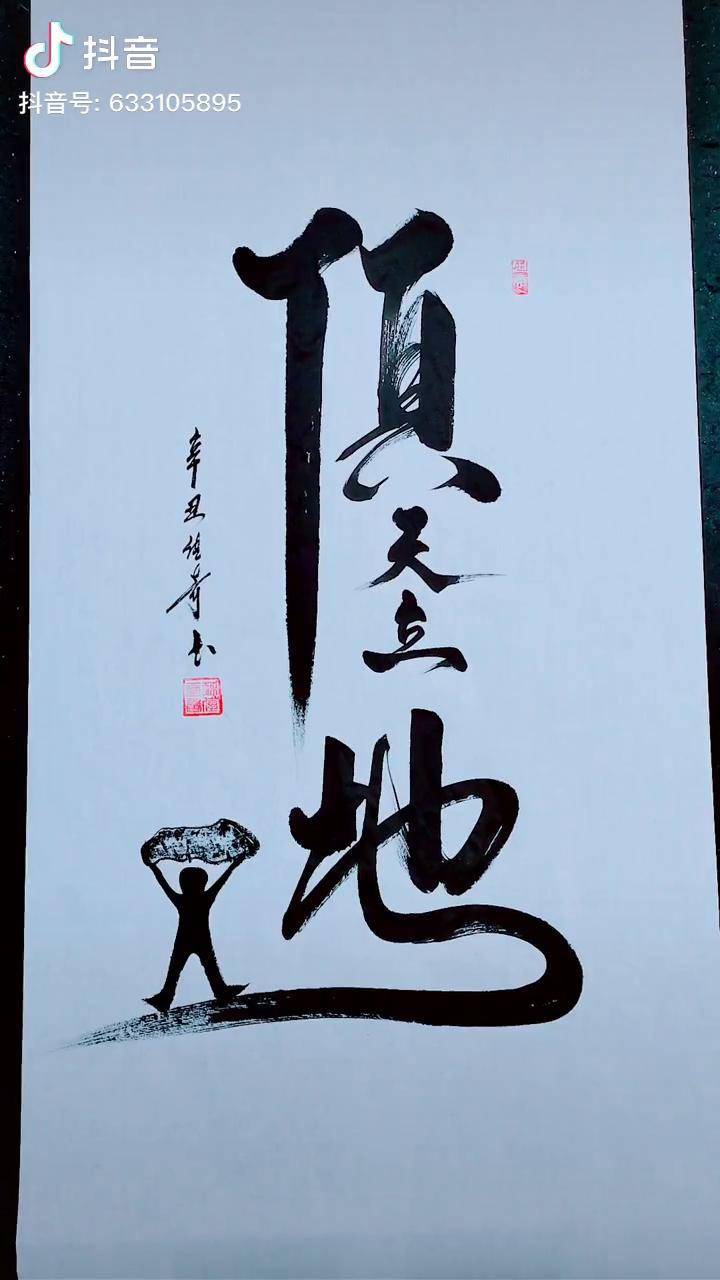 抖音
抖音号: 633105895
頂
天
立
地
辛丑佳奇书